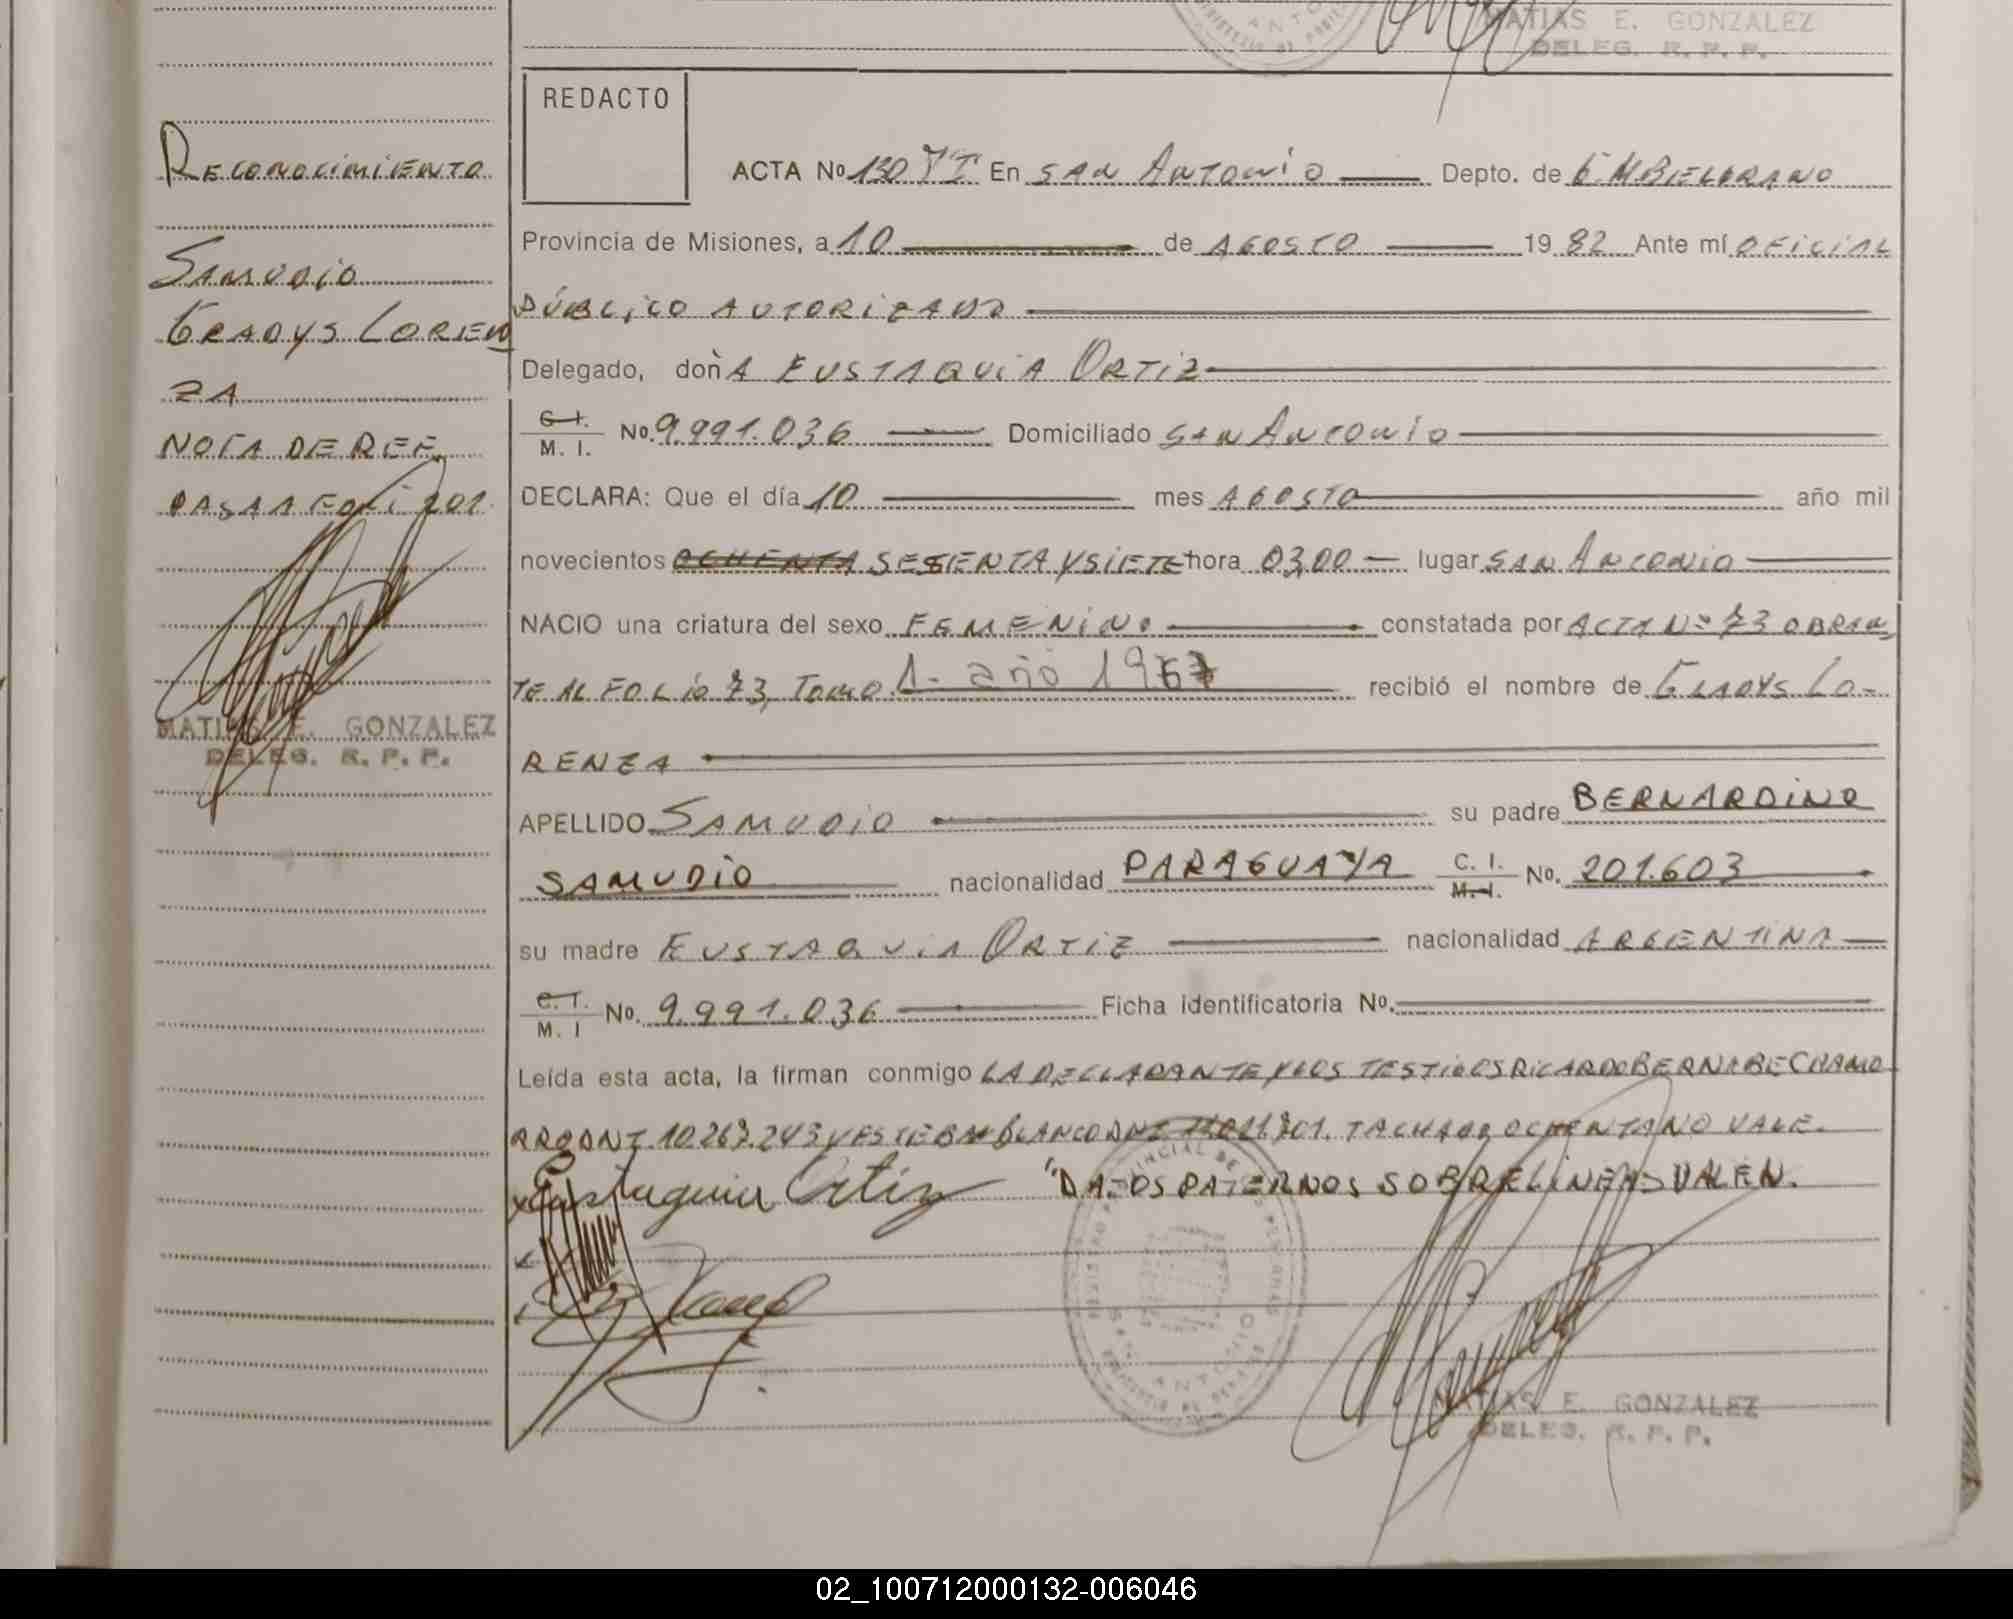 MATIAS E. GONZALEZ
DELEG. R. P. P.
RECONOCIMIENTO
SAMUDIO
GLADYS LOREN
ZA
NOTA DE REF.
PASA A FOLI 201.
MATIAS E. GONZALEZ
DELEG. R. P. P.
REDACTO
ACTA Nº 130 TI En SAN ANTONIO Depto. de G M BELGRANO
Provincia de Misiones, a 10 de AGOSTO 1982 Ante mí OFICIAL
PÚBLICO AUTORIZADO
Delegado, doñA EUSTAQUIA ORTIZ
C. I.
M. I. No. 9.991.036 Domiciliado SAN ANTONIO
DECLARA: Que el día 10 mes AGOSTO año mil
novecientos OCHENTA SESENTA Y SIETE hora 03,00 lugar SAN ANTONIO
NACIO una criatura del sexo FEMENINO constatada por ACTA Nº 73 OBRAN
TE AL FOLIO 73, TOMO 1- año 1967 recibió el nombre de GLADYS LO-
RENZA
APELLIDO SAMUDIO su padre BERNARDINO
SAMUDIO nacionalidad PARAGUAYA C. I.
M. I. No. 201.603
su madre EUSTAQUIA ORTIZ nacionalidad ARGENTINA
C. I.
M. I No. 9.991.036 Ficha identificatoria No.
Leída esta acta, la firman conmigo LA DECLARANTE Y LOS TESTIGOS RICARDO BERNABE CHAMO
RRO DNI 10.267.243 Y ESTEBAN BLANCO DNI 11.021.701. TACHADO OCHENTA NO VALE.
x Eustaquia Ortiz "DATOS PATERNOS SOBRELINEAS VALEN.
MATIAS E. GONZALEZ
DELEG. R. P. P.
02_100712000132-006046